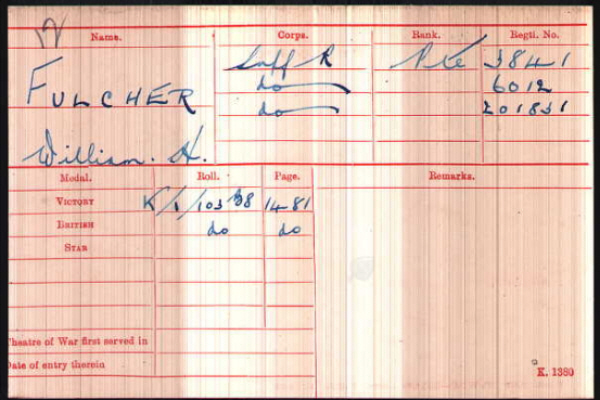 Name. Corps. Rank. Regtl. No.
FULCHER Suff R Pte 3841
do 6012
do 201831
William. H.
Medal. Roll. Page. Remarks.
VICTORY K/1/103 B8 1481
BRITISH do do
STAR
Theatre of War first served in
Date of entry therein
K. 1380